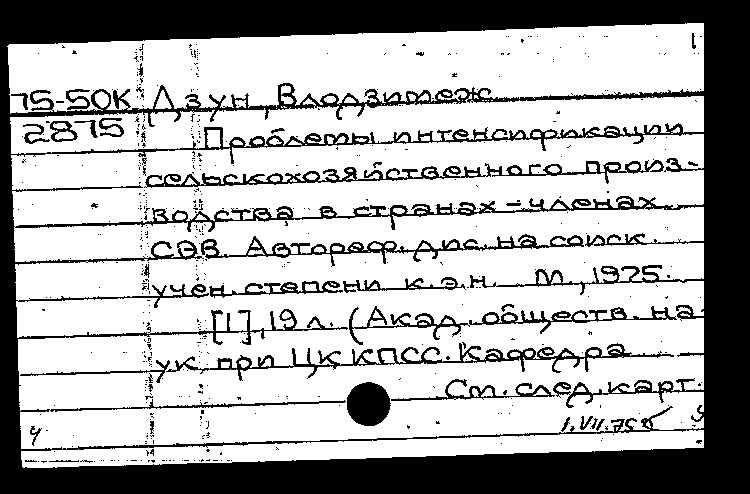 1
75-50К Дзун, Влодзимеж
2875 Проблемы интенсификации
сельскохозяйственного произ-
водства в странах-членах
СЭВ. Автореф. дис. на соиск.
учен. степени к.э.н. М., 1975.
[1], 19 л. (Акад. обществ. на-
ук при ЦК КПСС. Кафедра
См. след. карт.
1.VII.75